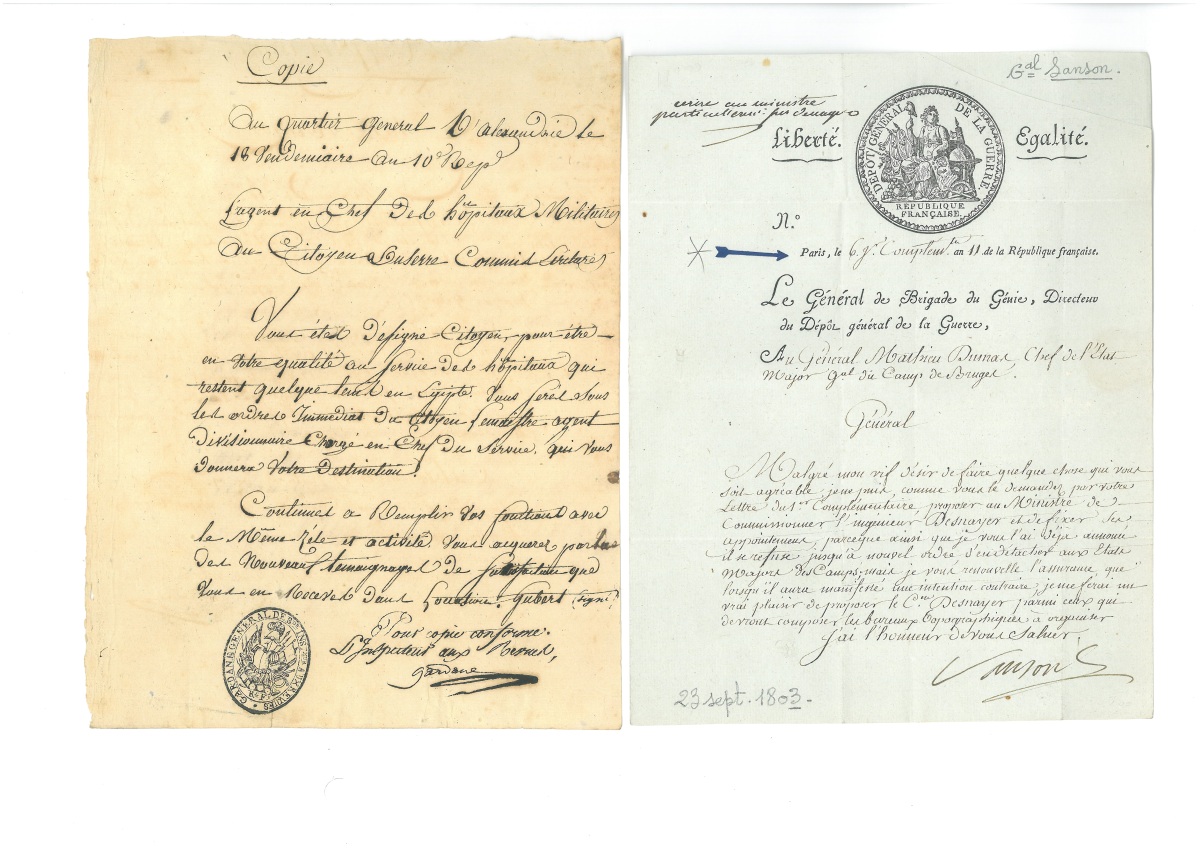 Copie
au quartier general D'alexandrie le
18 Vendemiaire an 10.e Rep.e
L'agent en Chef des hôpitaux Militaires
au Citoyen Duserre Commis Ecritures
Vous étes Désigné Citoyen, pour étre
en votre qualité au service des hôpitaux qui
restent quelque tems en Egipte. Vous seres sous
les ordres Immediat du Citoyen agent
Divisionnaire Chargé en Chef du Service, qui vous
donnera votre Destination.
Continues a Remplir vos fonctions avec
le Même zéle et activité. Vous acquerer par la
des Nouveau temoignages de satisfaction que
vous en Receves dans. Gubert signé
Pour copie conforme.
L'Inspecteur aux Revues,
Gardane
GARDANE GENERAL DE B.de INS.R AUX ARMÉES
R.F.
G.al Sanson.
ecrire au ministre
particulierem.t
Liberté.
DEPÔT GÉNÉRAL DE LA GUERRE.
RÉPUBLIQUE
FRANÇAISE.
Egalité.
N.o
Paris, le 6.e J.r Complem.re an 11 de la République française.
Le Général de Brigade du Génie, Directeur
du Dépôt général de la Guerre,
Au Général Mathieu Dumas, Chef de l'Etat
Major g.al du Camp de Bruges.
Général
Malgré mon vif désir de faire quelque chose qui vous
soit agréable, je ne puis, comme vous le demandez par votre
Lettre du 1.er Complémentaire, proposer au Ministre de
Commissionner l'ingenieur Desnayer et de fixer ses
appointemens, parceque ainsi que je vous l'ai déja annoncé
il se refuse jusqu'à nouvel ordre d'en détacher aux Etats
Majors des Camps; mais je vous renouvelle l'assurance que
lorsqu'il aura manifesté une intention contraire, je me ferai un
vrai plaisir de proposer le C.en Desnayer parmi ceux qui
devront composer les bureaux topographiques à organiser
J'ai l'honneur de vous saluer.
Sanson
23 sept. 1803.